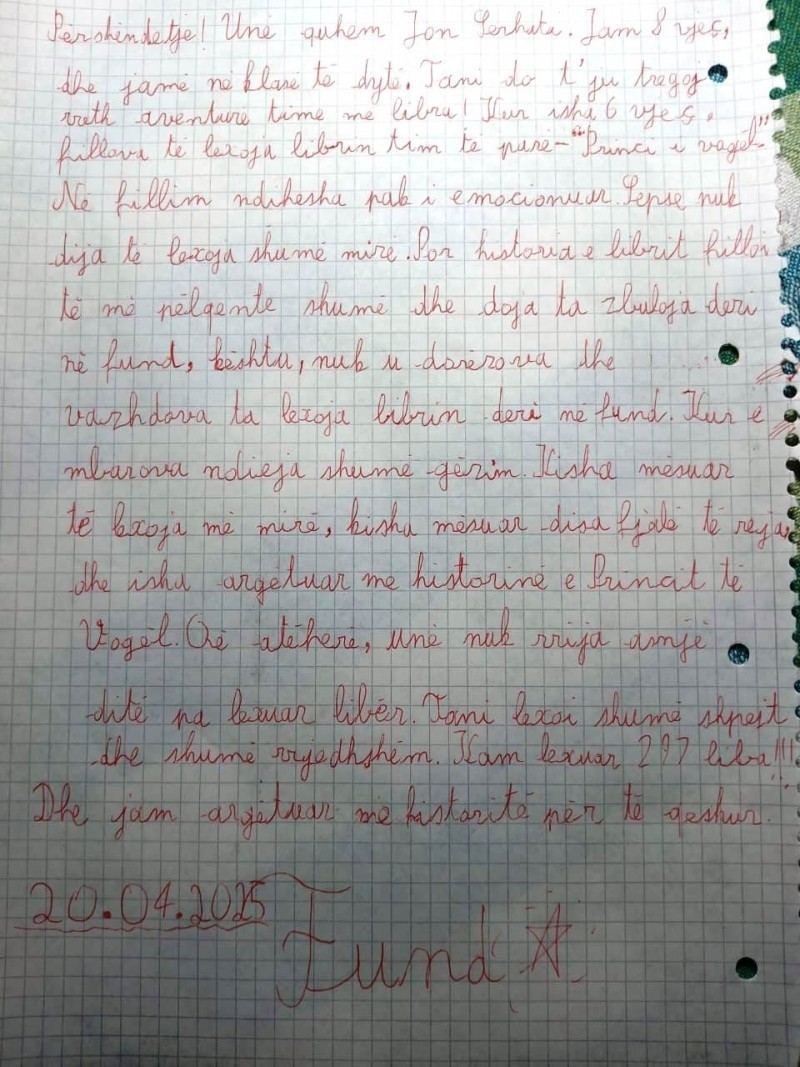 Përshëndetje! Unë quhem Jon Serhata. Jam 8 vjeç,
dhe jamë në klasë të dytë. Tani do t'ju tregoj
rreth aventure time me libra! Kur isha 6 vjeç,
fillova të lexoja librin tim të parë-"Princi i vogël"
Në fillim ndihesha pak i emocionuar. Sepse nuk
dija të lexoja shumë mirë. Por historia e librit filloi
të më pëlqente shumë dhe doja ta zbuloja deri
në fund, kështu, nuk u dorëzova dhe
vazhdova ta lexoja librin deri në fund. Kur e
mbarova ndieja shumë gëzim. Kisha mësuar
të lexoja më mirë, kisha mësuar disa fjalë të reja,
dhe isha argëtuar me historinë e Princit të
Vogël. Që atëherë, unë nuk rrija asnjë
ditë pa lexuar libër. Tani lexoi shumë shpejt
dhe shumë rrjedhshëm. Kam lexuar 297 liba!!!
Dhe jam argëtuar me historitë për të qeshur.
20.04.2025
Fund